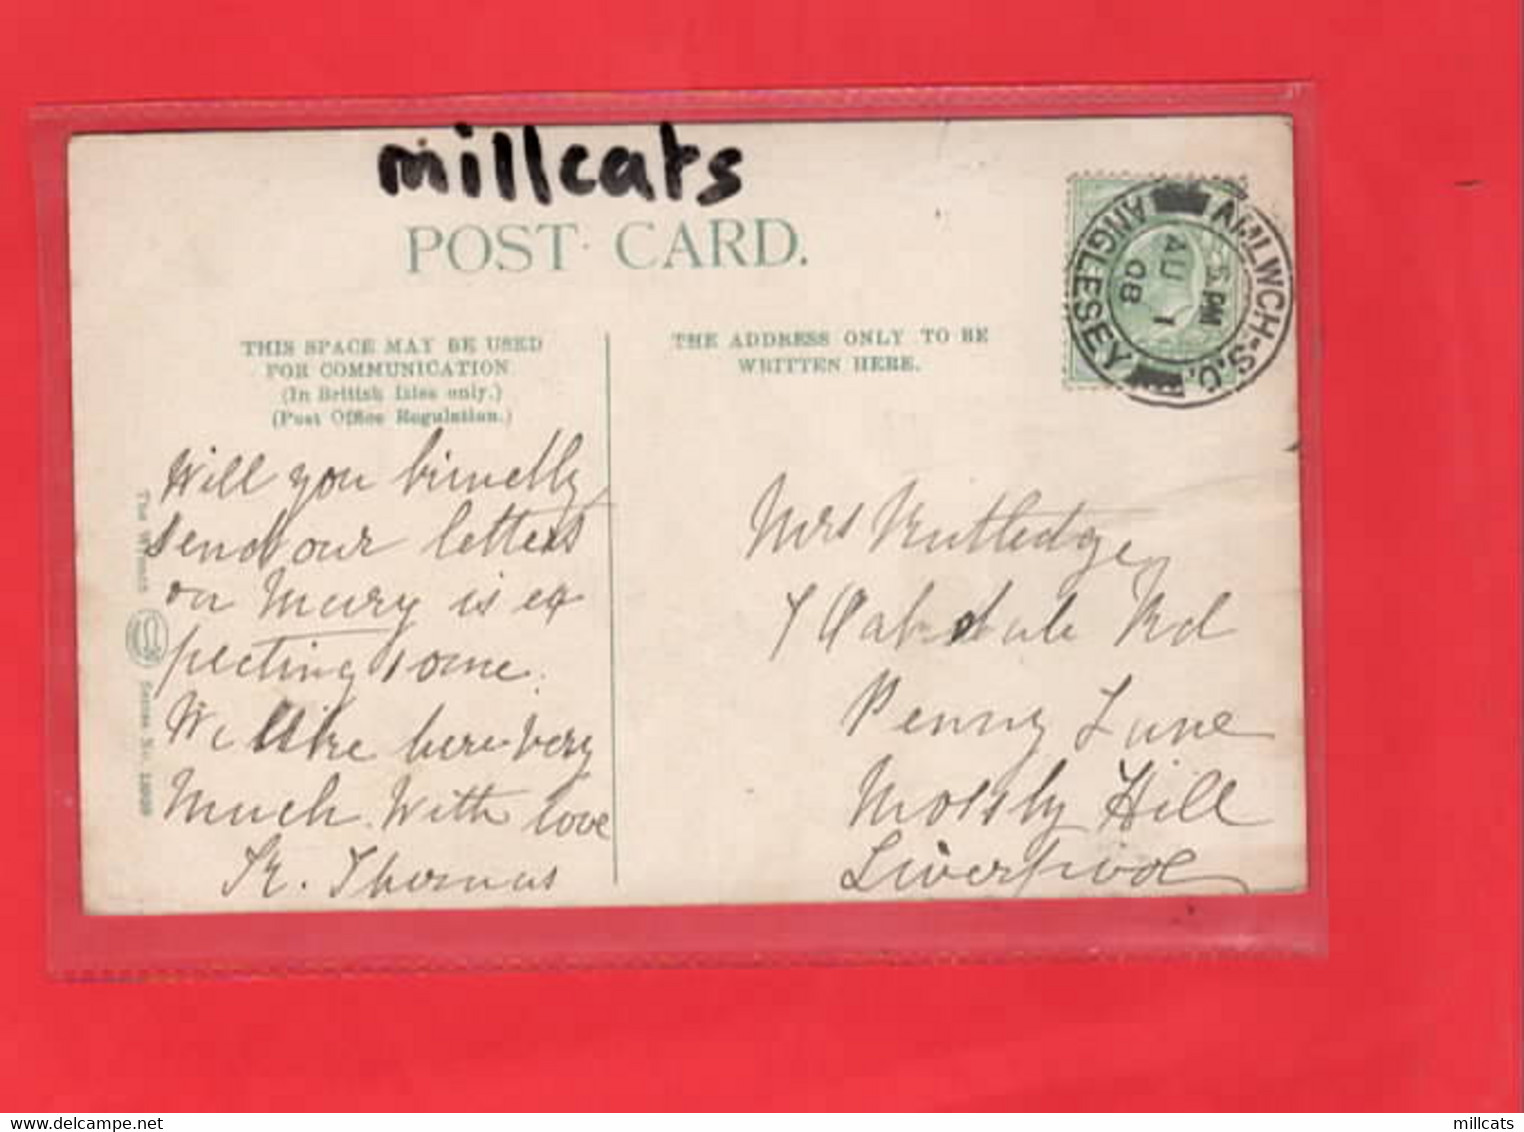 millcats
POST CARD.
THIS SPACE MAY BE USED
FOR COMMUNICATION
(In British Isles only.)
(Post Office Regulation.)
THE ADDRESS ONLY TO BE
WRITTEN HERE.
AMLWCH-S.O.
ANGLESEY
5 PM
AU 1
08
Will you
send our letters
on Mary is ex
pecting some.
We like here very
Much. With love
K. Thomas
The Wrench
Series No.
Mrs Rutledge
7 Oakdale Rd
Penny Lane
Mossly Hill
Liverpool
millcats